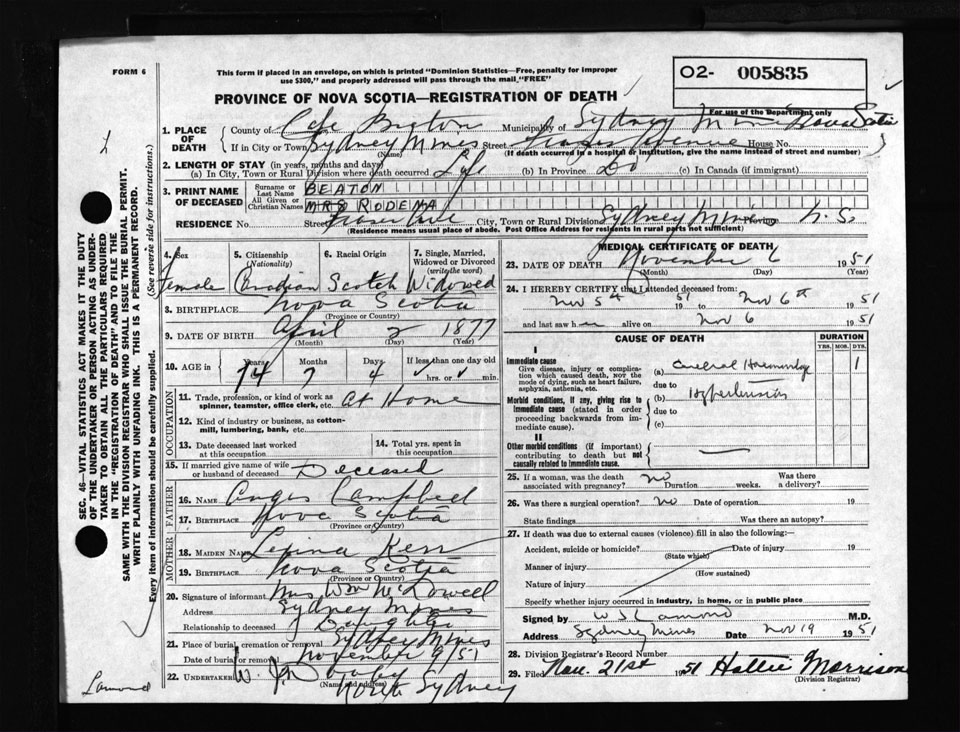 FORM 6
This form if placed in an envelope, on which is printed "Dominion Statistics—Free, penalty for improper
use $300," and properly addressed will pass through the mail, "FREE"
O2- 005835
PROVINCE OF NOVA SCOTIA—REGISTRATION OF DEATH
For use of the Department only
1. PLACE OF DEATH
County of Cape Breton Municipality of Sydney Mines Nova Scotia
If in City or Town Sydney Mines Street House No.
(Name) (If death occurred in a hospital or institution, give the name instead of street and number)
2. LENGTH OF STAY (in years, months and days)
(a) In City, Town or Rural Division where death occurred Life (b) In Province Do (c) In Canada (if immigrant)
3. PRINT NAME OF DECEASED
Surname or Last Name BEATON
All Given or Christian Names MRS RODEMA
RESIDENCE No. Street Fraser Ave City, Town or Rural Division Sydney Mines Province N. S.
(Residence means usual place of abode. Post Office Address for residents in rural parts not sufficient)
4. Sex Female
5. Citizenship (Nationality) Canadian
6. Racial Origin Scotch
7. Single, Married, Widowed or Divorced (write the word) Widowed
8. BIRTHPLACE Nova Scotia
(Province or Country)
9. DATE OF BIRTH April 2 1877
(Month) (Day) (Year)
10. AGE in Years Months Days If less than one day old
74 7 4 hrs. or min.
OCCUPATION
11. Trade, profession, or kind of work as spinner, teamster, office clerk, etc. At Home
12. Kind of industry or business, as cotton-mill, lumbering, bank, etc.
13. Date deceased last worked at this occupation
14. Total yrs. spent in this occupation
15. If married give name of wife or husband of deceased Deceased
FATHER
16. NAME Angus Campbell
17. BIRTHPLACE Nova Scotia
(Province or Country)
MOTHER
18. MAIDEN NAME Lexina Kerr
19. BIRTHPLACE Nova Scotia
(Province or Country)
20. Signature of informant Mrs Wm McDowell
Address Sydney Mines
Relationship to deceased Daughter
21. Place of burial, cremation or removal Sydney Mines
Date of burial or removal November 9/51
22. UNDERTAKER W. J.
(Name and address) North Sydney
MEDICAL CERTIFICATE OF DEATH
23. DATE OF DEATH November 6 1951
(Month) (Day) (Year)
24. I HEREBY CERTIFY that I attended deceased from:
Nov 5th 51 to Nov 6th 1951
and last saw h er alive on Nov 6 1951
CAUSE OF DEATH
DURATION
YRS. MOS. DYS.
I
Immediate cause
Give disease, injury or complication which caused death, NOT the mode of dying, such as heart failure, asphyxia, asthenia, etc.
(a) Cerebral Haemorrhage 1
due to
Morbid conditions, if any, giving rise to immediate cause (stated in order proceeding backwards from immediate cause).
(b) Hypertension
due to
(c)
II
Other morbid conditions (if important) contributing to death but not causally related to immediate cause.
25. If a woman, was the death associated with pregnancy? no Duration weeks. Was there a delivery?
26. Was there a surgical operation? no Date of operation 19
State findings Was there an autopsy?
27. If death was due to external causes (violence) fill in also the following:—
Accident, suicide or homicide? Date of injury 19
(State which)
Manner of injury
(How sustained)
Nature of injury
Specify whether injury occurred in industry, in home, or in public place
Signed by W S Lamond M.D.
Address Sydney Mines Date Nov 19 1951
28. Division Registrar's Record Number
29. Filed Nov. 21st 1951 Hattie Morrison
(Division Registrar)
SEC. 46—VITAL STATISTICS ACT MAKES IT THE DUTY
OF THE UNDERTAKER OR PERSON ACTING AS UNDER-
TAKER TO OBTAIN ALL THE PARTICULARS REQUIRED
IN THE "REGISTRATION OF DEATH" AND TO FILE THE
SAME WITH THE DIVISION REGISTRAR WHO SHALL ISSUE THE BURIAL PERMIT.
WRITE PLAINLY WITH UNFADING INK. THIS IS A PERMANENT RECORD.
Every item of information should be carefully supplied. (See reverse side for instructions.)
Lamond